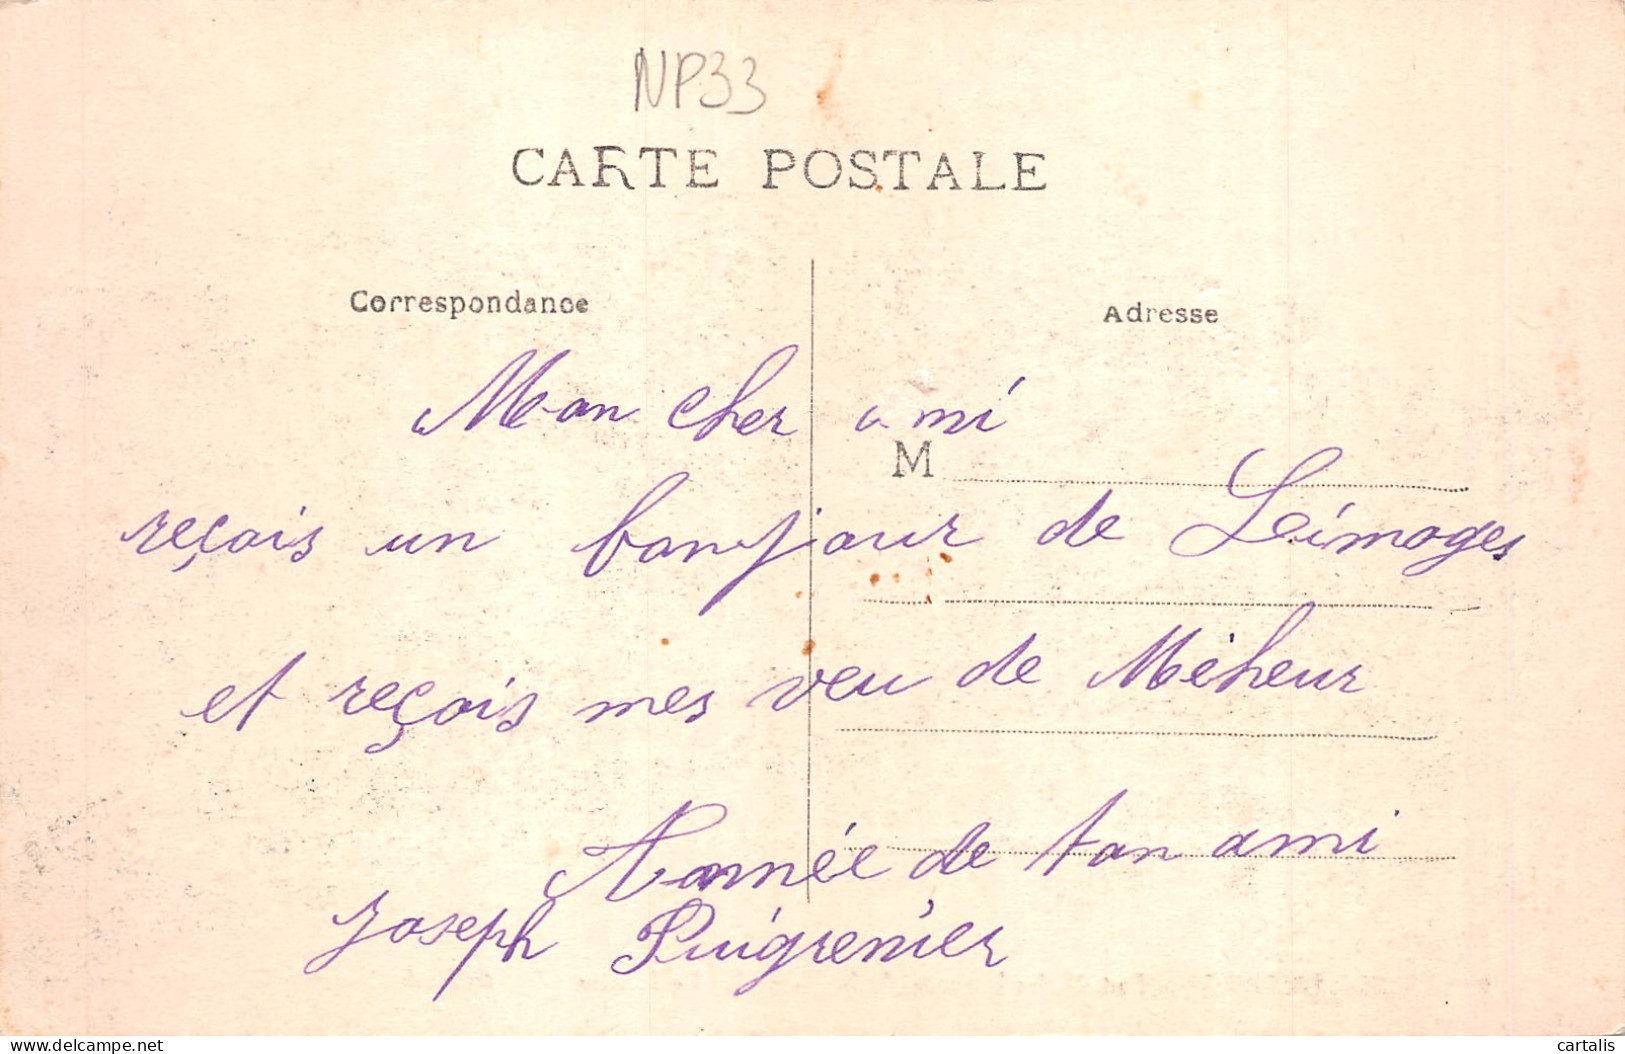 NP33
CARTE POSTALE
Correspondance
Adresse
Mon cher ami
M
reçois un bonjour de Leimoges
et reçois mes veu de Méheur
Année de ton ami
Joseph Puigrenier
delcampe.net
cartalis